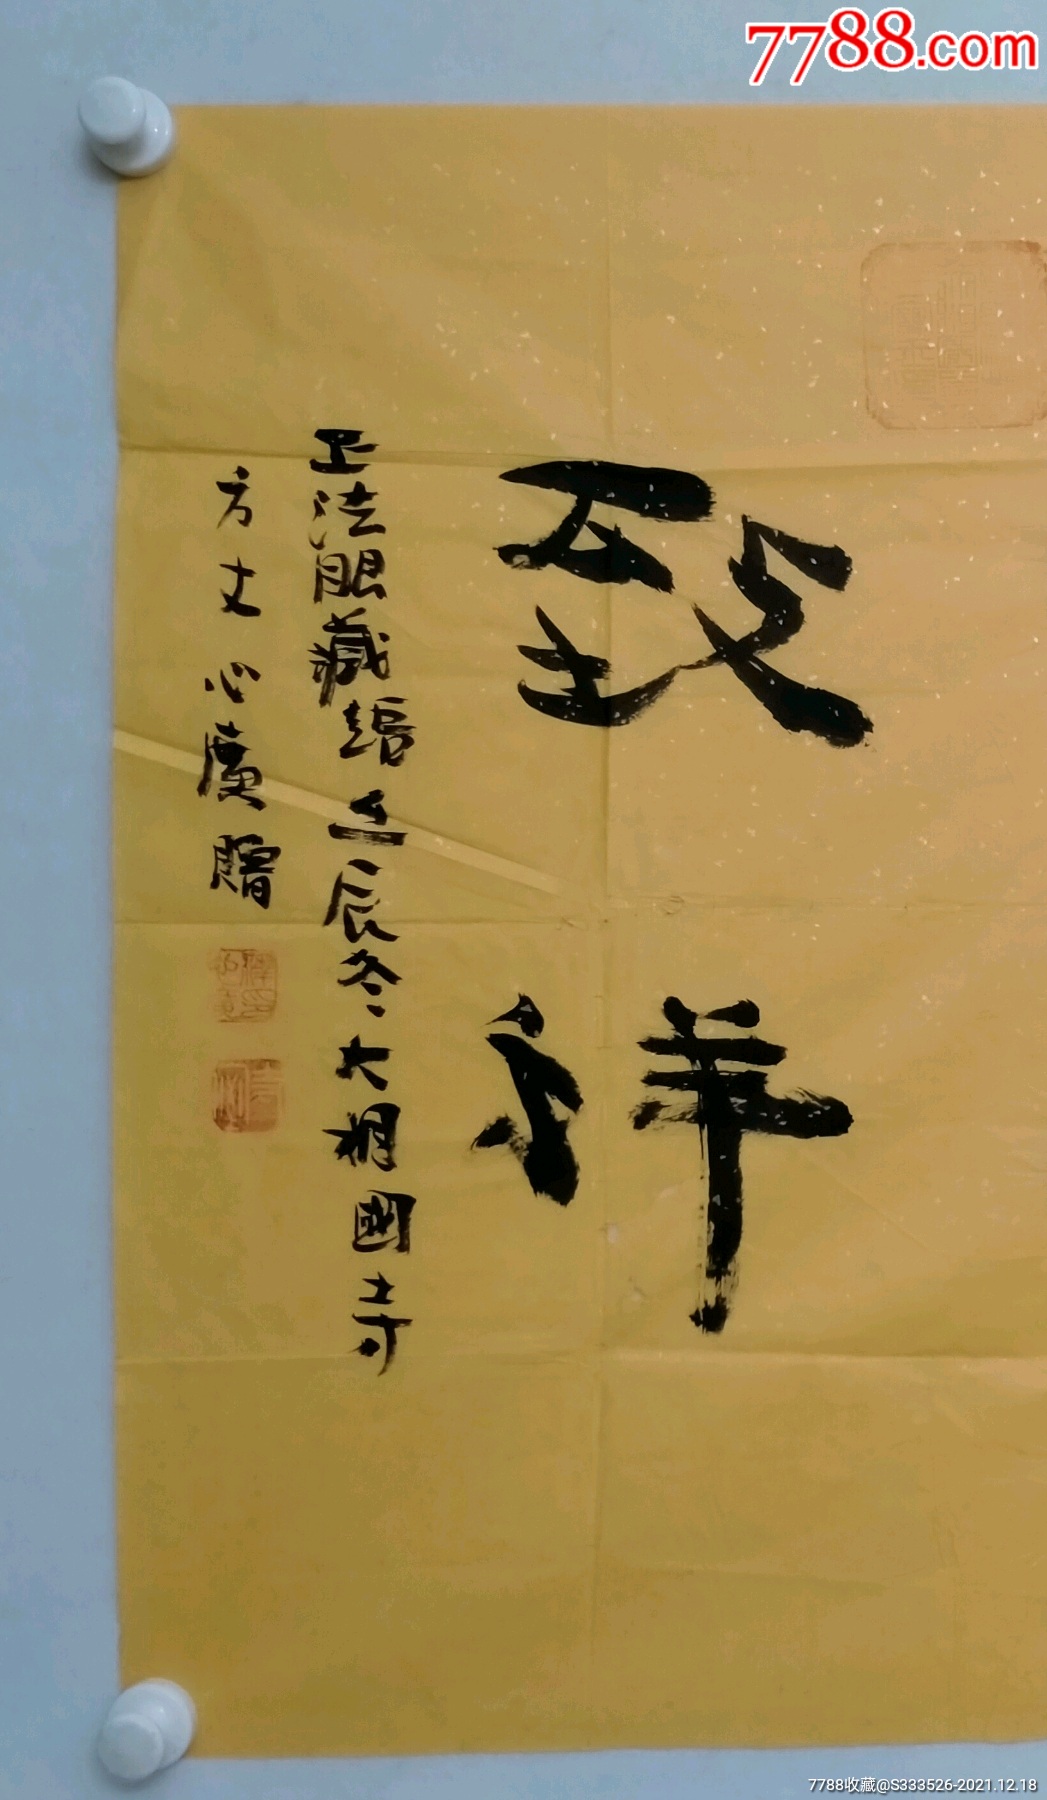 7788.com
致祥
正法眼藏 壬辰冬大相國寺
方丈心廣贈
7788收藏@S333526-2021.12.18